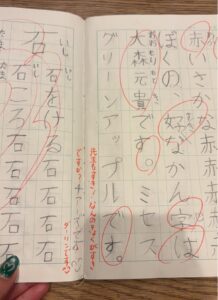 赤いさかな赤赤赤
ぼくの、好なかん字は
大森元貴です。ミセス
おおもりもとき
グリーンアップルです。
先生もすき！なんのきょくがすき
ですか？チアーズです♡
ダーリンも♡
石をける石石石
いし
石ころ石石石石
いし
石